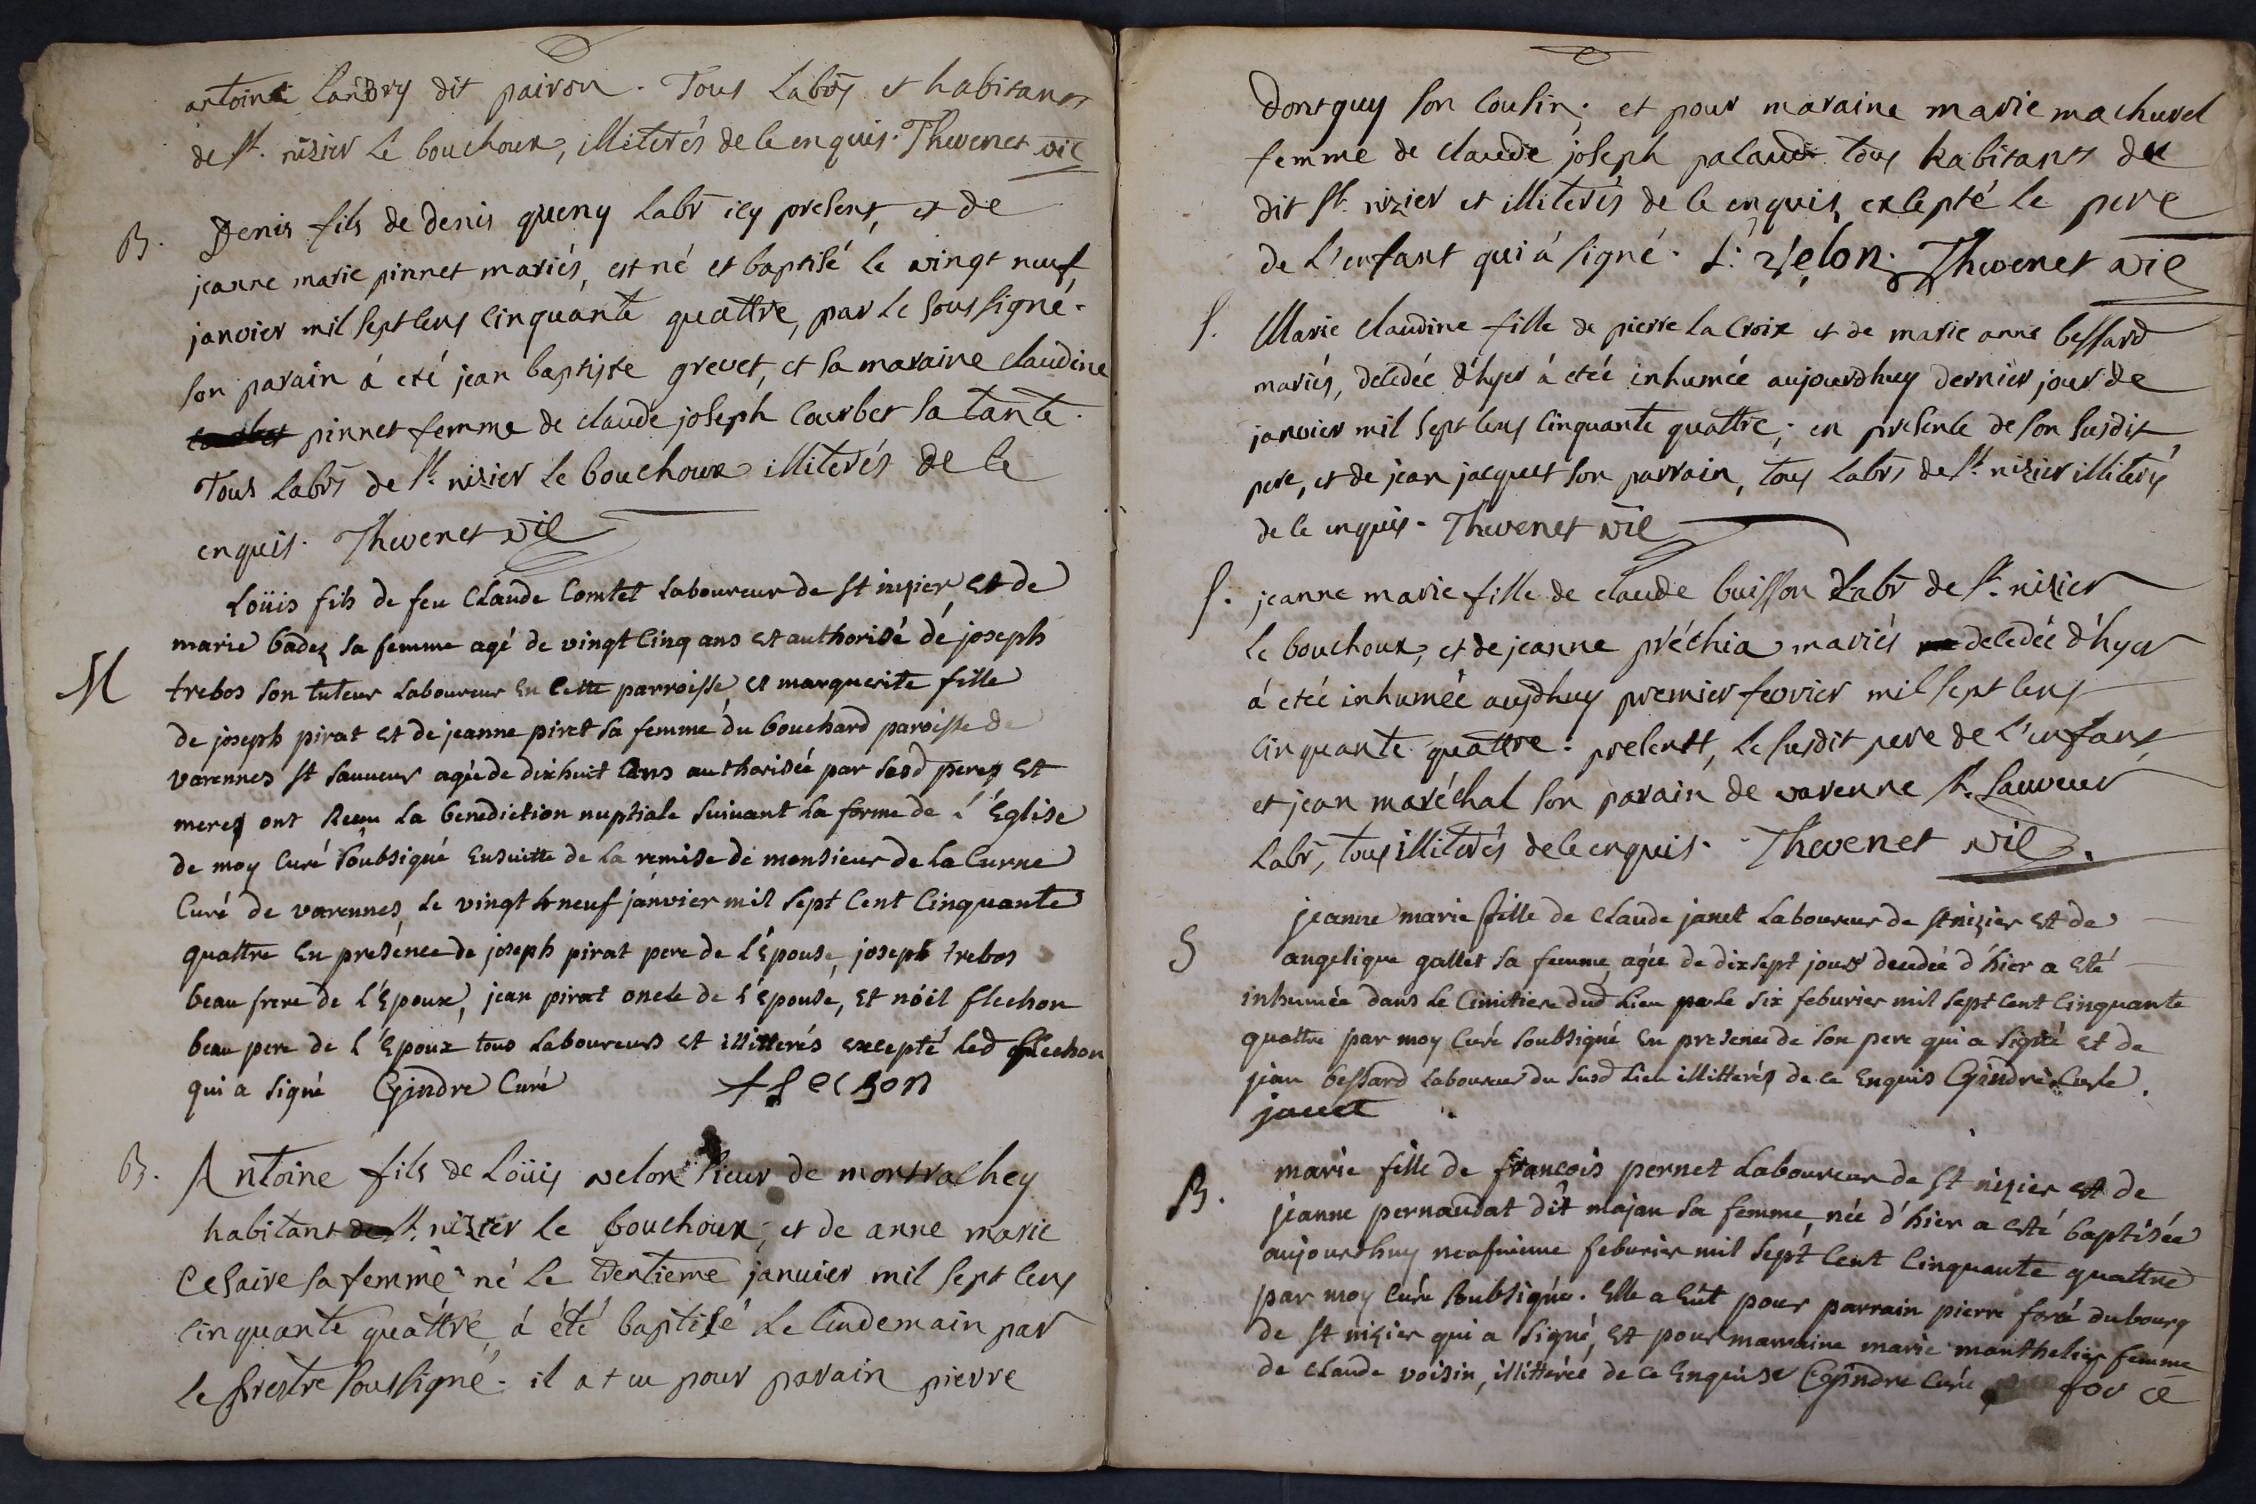 antoine Landry dit pairon. Tous Labrs et habitants
de st. nizier le bouchoux, illiterés de ce enquis. Thevenet vic
B. Denis fils de denis queny labr icy present, et de
jeanne marie pinnet mariés, est né et baptisé le vingt neuf
janvier mil sept cens cinquante quattre, par le soussigné.
son parain á eté jean baptiste grevet, et sa maraine claudine
pinnet femme de claude joseph courbet sa tante.
Tous labrs de st. nizier le bouchoux illiterés de ce
enquis. Thevenet vic
Loüis fils de feu Claude Comtet Laboureur de st nizier et de
marie badez sa femme agé de vingt cinq ans et authorisé de joseph
M trebos son tuteur Laboureur en cette parroisse, et marguerite fille
de joseph pirat et de jeanne piret sa femme du bouchard paroisse de
varennes st sauveur agée de dixhuit ans authorisée par sesd peres et
meres ont Reçu la benediction nuptiale suivant la forme de l'Église
de moy Curé soubsigné ensuitte de la remise de monsieur de la Curne
Curé de varennes, le vingt neuf janvier mil sept Cent Cinquante
quattre en présence de joseph pirat pere de l'Épouse, joseph trebos
beau frere de l'Epoux, jean pirat oncle de l'épouse, et nöil flechon
beau pere de l'Epoux tous Laboureurs et illitterés excepté led flechon
qui a signé Gindre Curé flechon
B. Antoine fils de Loüis velon sieur de montrachey
habitant de st. nizier le bouchoux, et de anne marie
Cesaire sa femme né le trentieme janvier mil sept cens
cinquante quattre, á été baptisé le lendemain par
le prestre soussigné. il a eu pour parain pierre
dontquy son cousin; et pour maraine marie machurel
femme de claude joseph palaud tous habitants du
dit st. nizier et illiterés de ce enquis, excepté le pere
de l'enfant qui á signé. L. velon. Thevenet vic
S. Marie claudine fille de pierre la croix et de marie anne bessard
mariés, decedée d'hyer á etéé inhumée aujourdhuy dernier jour de
janvier mil sept cens cinquante quattre; en presence de son susdit
pere, et de jean jacquet son parrain, tous labrs de st. nizier illiterés
de ce enquis. Thevenet vic
S. jeanne marie fille de claude buisson labr de st. nizier
le bouchoux, et de jeanne préchia mariés decedée d'hyer
á etéé inhumée aujdhuy premier fevrier mil sept cens
cinquante quattre: presents, le susdit pere de l'enfant,
et jean maréchal son parain de varenne st. sauveur
labr, tous illiterés de ce enquis. Thevenet vic.
jeanne marie fille de Claude janet Laboureur de st nizier et de
S angelique gallet sa femme, agée de dixsept jours decedée d'hier a eté
inhumée dans le Cimitiere dud Lieu le six feburier mil sept cent Cinquante
quattre par moy Curé soubsigné en presence de son pere qui a signé et de
jean bessard laboureur du susd Lieu illitterés de ce Enquis Gindre Curé.
janet
B. marie fille de françois pernet Laboureur de st nizier et de
jeanne pernaudat dit majan sa femme, née d'hier a esté baptisée
aujourdhuy neufvieme feburier mil sept Cent Cinquante quattre
par moy Curé soubsigné. Elle a eüt pour parrain pierre foré du bourg
de st nizier qui a signé, et pour marraine marie monthelier femme
de Claude voisin, illitterée de ce Enquise Gindre Curé foré